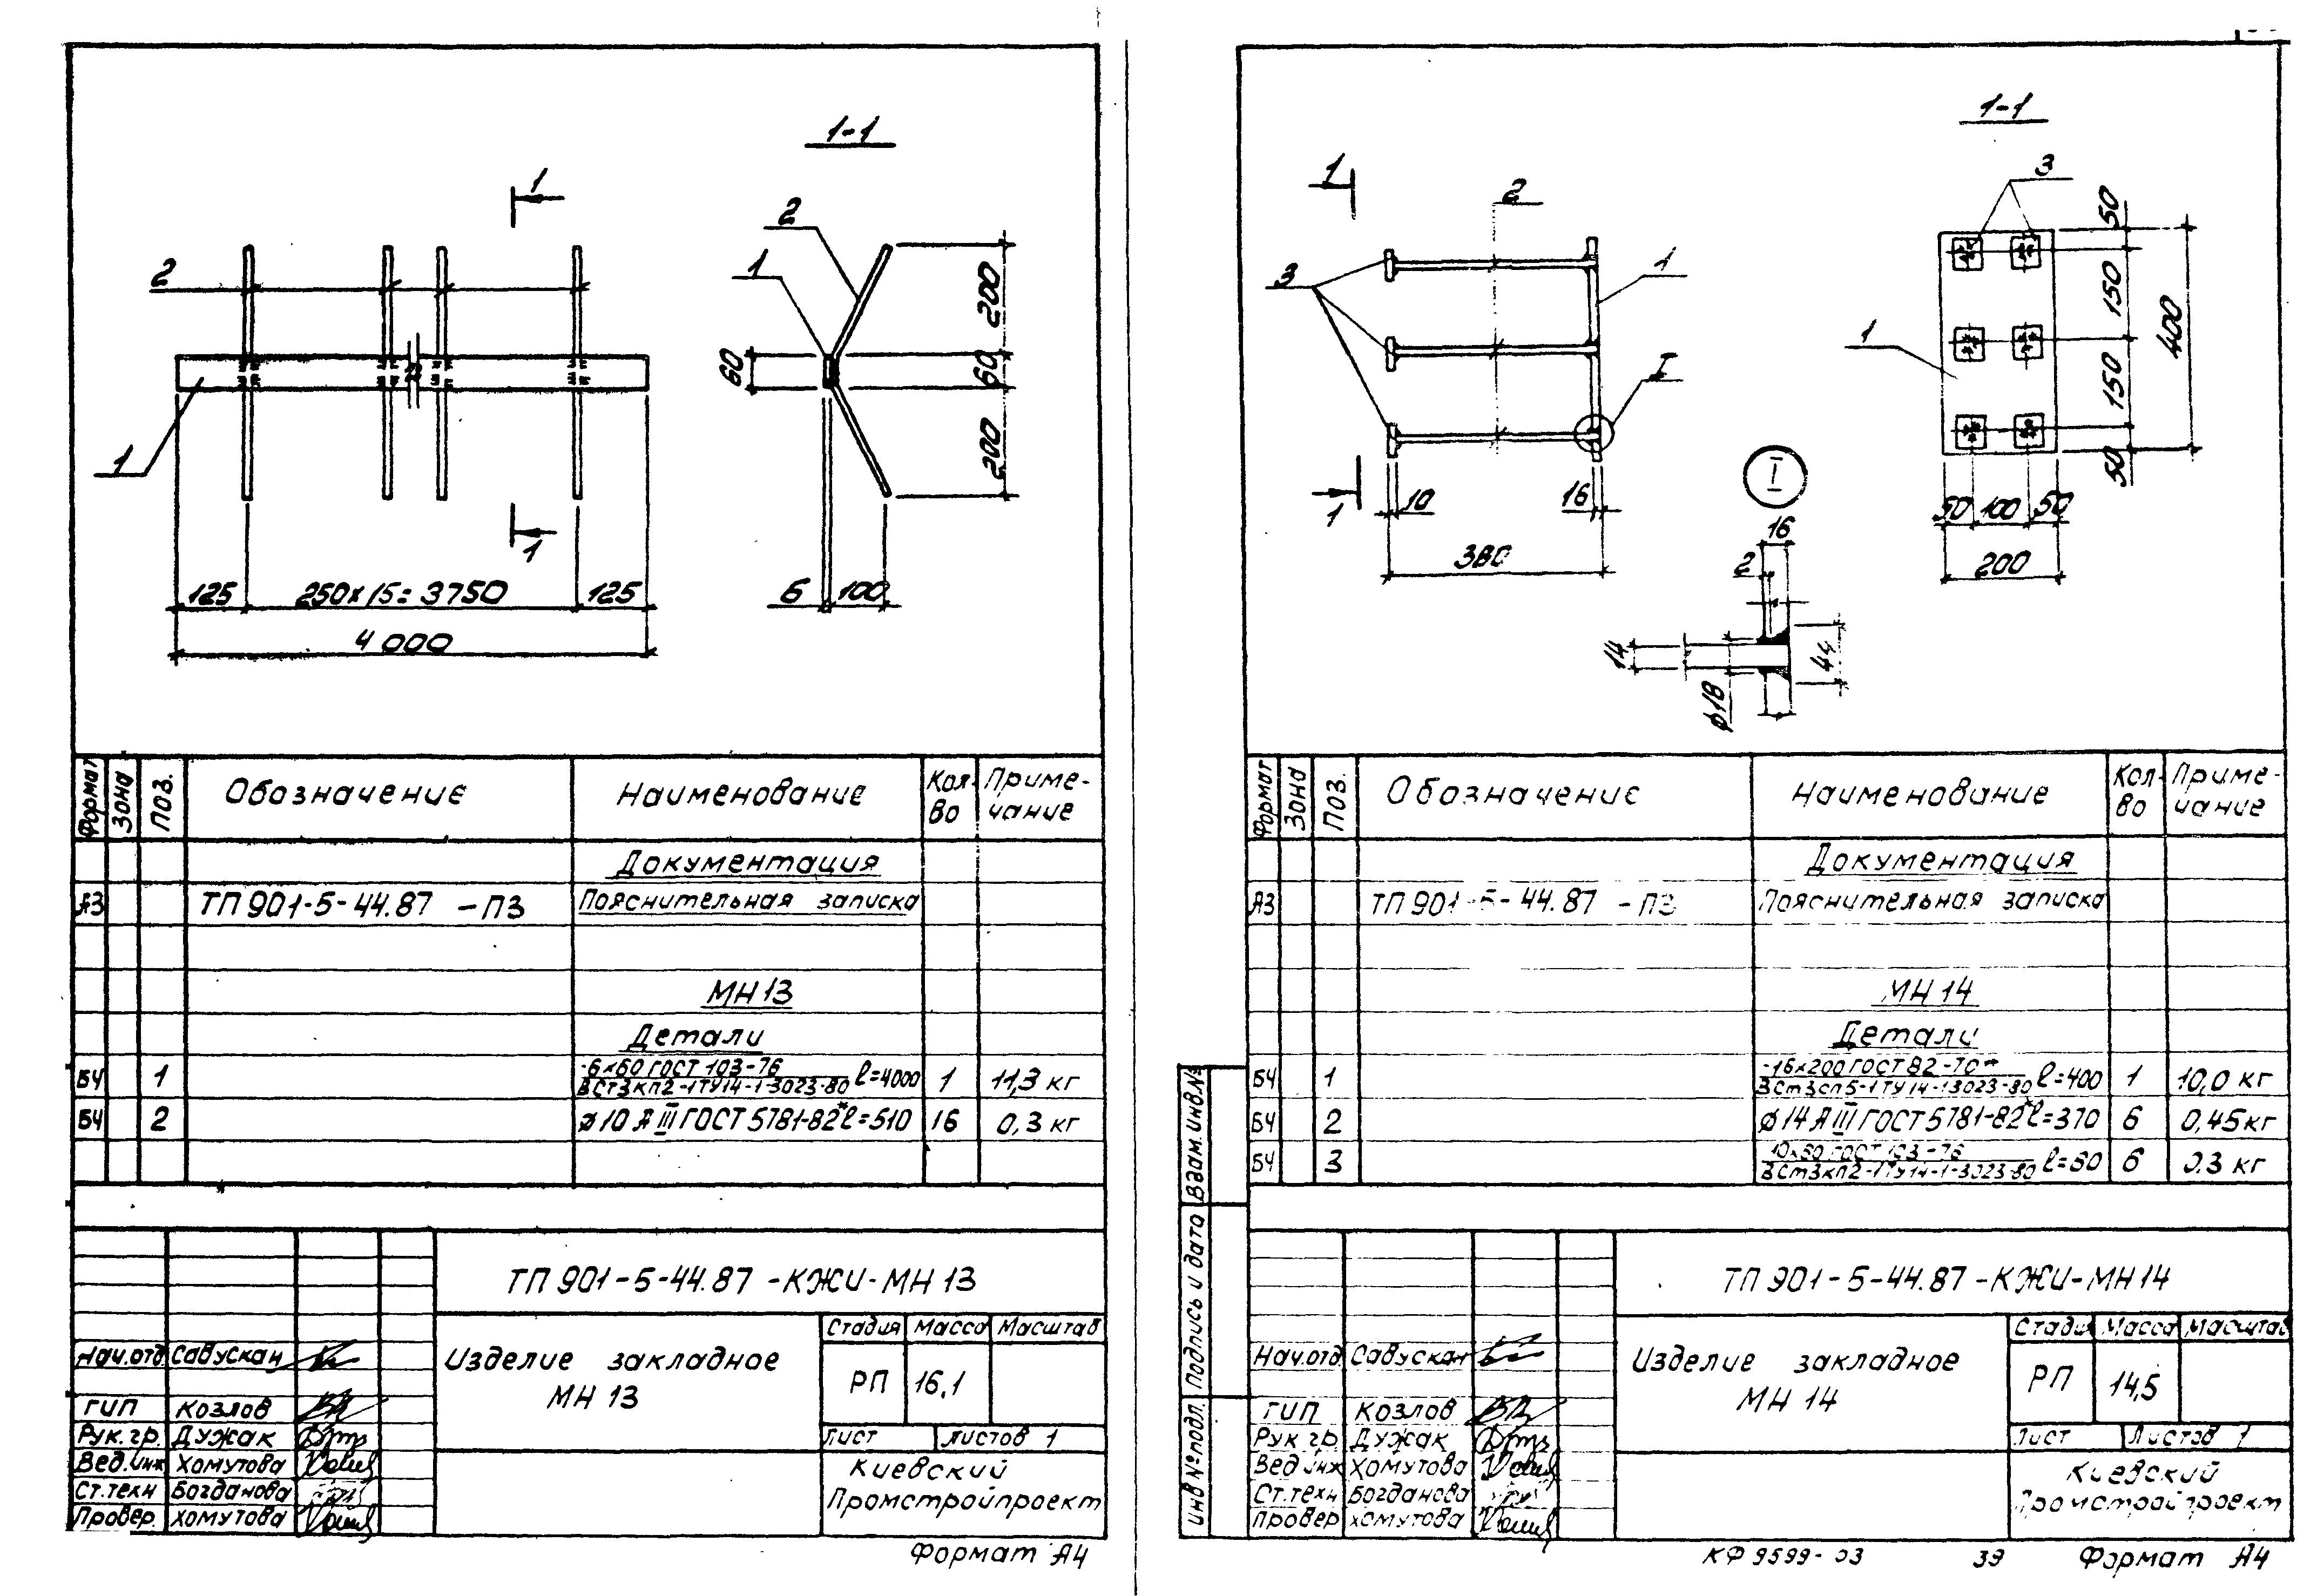 1-1
1
2
2
1
200
60
60
200
1
1
125
250х15=3750
125
6
100
4000
Формат
Зона
Поз.
Обозначение
Наименование
Кол-во
Примечание
Документация
А3
ТП 901-5-44.87 -ПЗ
Пояснительная записка
МН 13
Детали
БЧ
1
-6х60 ГОСТ 103-76
ВСт3кп2-1 ТУ14-1-3023-80
ℓ=4000
1
11,3 кг
БЧ
2
ϕ10 АIII ГОСТ 5781-82* ℓ=510
16
0,3 кг
ТП 901-5-44.87 -КЖИ-МН 13
Стадия
Масса
Масштаб
Изделие закладное
МН 13
РП
16,1
Нач.отд.
Савускан
ГИП
Козлов
Рук.гр.
Дужак
Вед.инж
Хомутова
Ст.техн
Богданова
Провер.
Хомутова
Лист
Листов 1
Киевский
Промстройпроект
Формат А4
1-1
1
2
3
50
3
1
150
400
1
I
150
50
I
1
10
16
50
100
50
16
380
2
200
14
44
ϕ18
Формат
Зона
Поз.
Обозначение
Наименование
Кол-во
Примечание
Документация
А3
ТП 901-5-44.87 -ПЗ
Пояснительная записка
МН 14
Детали
БЧ
1
-16х200 ГОСТ 82-70*
ВСт3сп5-1 ТУ14-1-3023-80
ℓ=400
1
10,0 кг
БЧ
2
ϕ14 АIII ГОСТ 5781-82* ℓ=370
6
0,45 кг
БЧ
3
ВСт3кп2-1 ТУ14-1-3023-80
6
0,3 кг
Взам.инв.№
Подпись и дата
Инв № подл.
ТП 901-5-44.87 -КЖИ-МН 14
Стадия
Масса
Масштаб
Изделие закладное
МН 14
РП
14,5
Нач.отд
Савускан
ГИП
Козлов
Рук.гр
Дужак
Вед инж
Хомутова
Ст.техн
Богданова
Провер
Хомутова
Лист
Листов 1
Киевский
Промстройпроект
КФ 9599-03
39
Формат А4